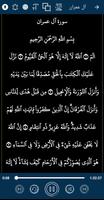 آل عمران
سورة آل عمران
بِسْمِ اللَّهِ الرَّحْمَنِ الرَّحِيمِ
الم ۝ اللَّهُ لَا إِلَهَ إِلَّا هُوَ الْحَيُّ الْقَيُّومُ ۝ نَزَّلَ
عَلَيْكَ الْكِتَابَ بِالْحَقِّ مُصَدِّقًا لِمَا بَيْنَ يَدَيْهِ
وَأَنْزَلَ التَّوْرَاةَ وَالْإِنْجِيلَ ۝ مِنْ قَبْلُ هُدًى لِلنَّاسِ
وَأَنْزَلَ الْفُرْقَانَ إِنَّ الَّذِينَ كَفَرُوا بِآيَاتِ اللَّهِ لَهُمْ
عَذَابٌ شَدِيدٌ وَاللَّهُ عَزِيزٌ ذُو انْتِقَامٍ ۝ إِنَّ اللَّهَ لَا
يَخْفَى عَلَيْهِ شَيْءٌ فِي الْأَرْضِ وَلَا فِي السَّمَاءِ ۝
هُوَ الَّذِي يُصَوِّرُكُمْ فِي الْأَرْحَامِ كَيْفَ يَشَاءُ
0:08 1:02:27